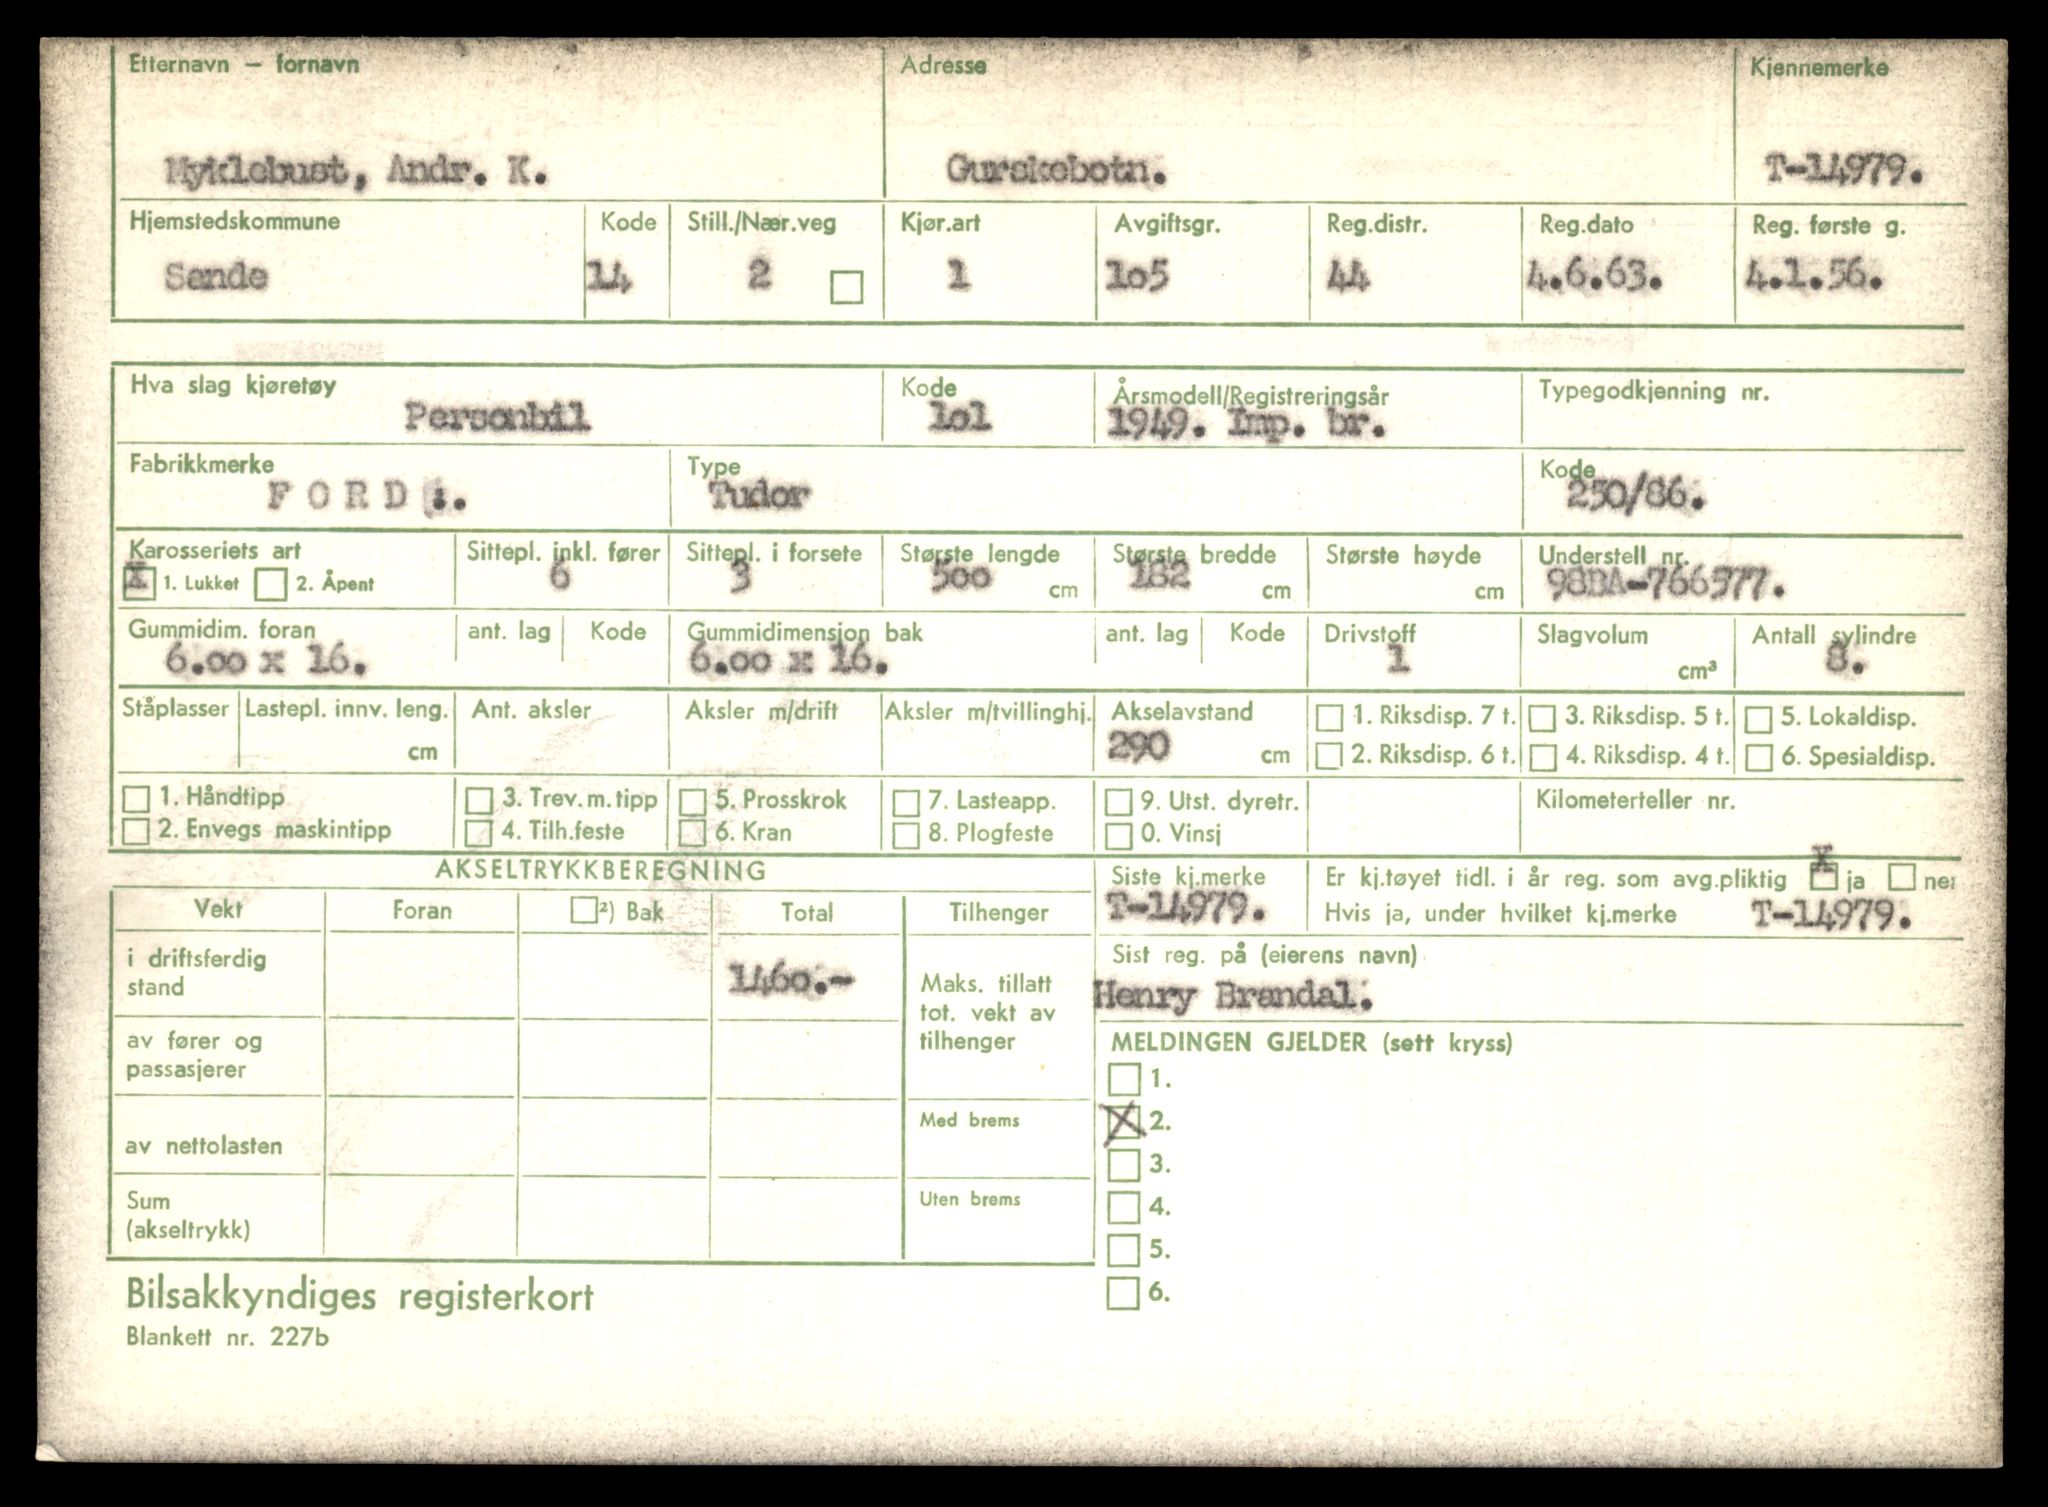 Etternavn – fornavn Adresse Kjennemerke
Myklebust, Andr. K. Gurskebotn. T-14979.
Hjemstedskommune Kode Still./Nær.veg Kjør.art Avgiftsgr. Reg.distr. Reg.dato Reg. første g.
Sande 14 2 1 1o5 44 4.6.63. 4.1.56.
Hva slag kjøretøy Kode Årsmodell/Registreringsår Typegodkjenning nr.
Personbil 1o1 1949. Imp. br.
Fabrikkmerke Type Kode
F O R D :. Tudor 250/86.
Karosseriets art Sittepl. inkl. fører Sittepl. i forsete Største lengde Største bredde Største høyde Understell nr.
X 1. Lukket 2. Åpent 6 3 5oo cm 182 cm cm 98BA-766577.
Gummidim. foran ant. lag Kode Gummidimensjon bak ant. lag Kode Drivstoff Slagvolum Antall sylindre
6.oo x 16. 6.oo x 16. 1 cm³ 8.
Ståplasser Lastepl. innv. leng. Ant. aksler Aksler m/drift Aksler m/tvillinghj. Akselavstand 1. Riksdisp. 7 t. 3. Riksdisp. 5 t. 5. Lokaldisp.
cm 290 cm 2. Riksdisp. 6 t. 4. Riksdisp. 4 t. 6. Spesialdisp.
1. Håndtipp 3. Trev. m. tipp 5. Prosskrok 7. Lasteapp. 9. Utst. dyretr. Kilometerteller nr.
2. Envegs maskintipp 4. Tilh.feste 6. Kran 8. Plogfeste 0. Vinsj
AKSELTRYKKBEREGNING Siste kj.merke Er kj.tøyet tidl. i år reg. som avg.pliktig X ja nei
Vekt Foran ²) Bak Total Tilhenger T-14979. Hvis ja, under hvilket kj.merke T-14979.
i driftsferdig stand 1460.- Maks. tillatt tot. vekt av tilhenger
Sist reg. på (eierens navn)
Henry Brandal.
av fører og passasjerer
MELDINGEN GJELDER (sett kryss)
1.
X 2.
Med brems
av nettolasten
3.
Uten brems
4.
Sum (akseltrykk)
5.
6.
Bilsakkyndiges registerkort
Blankett nr. 227b